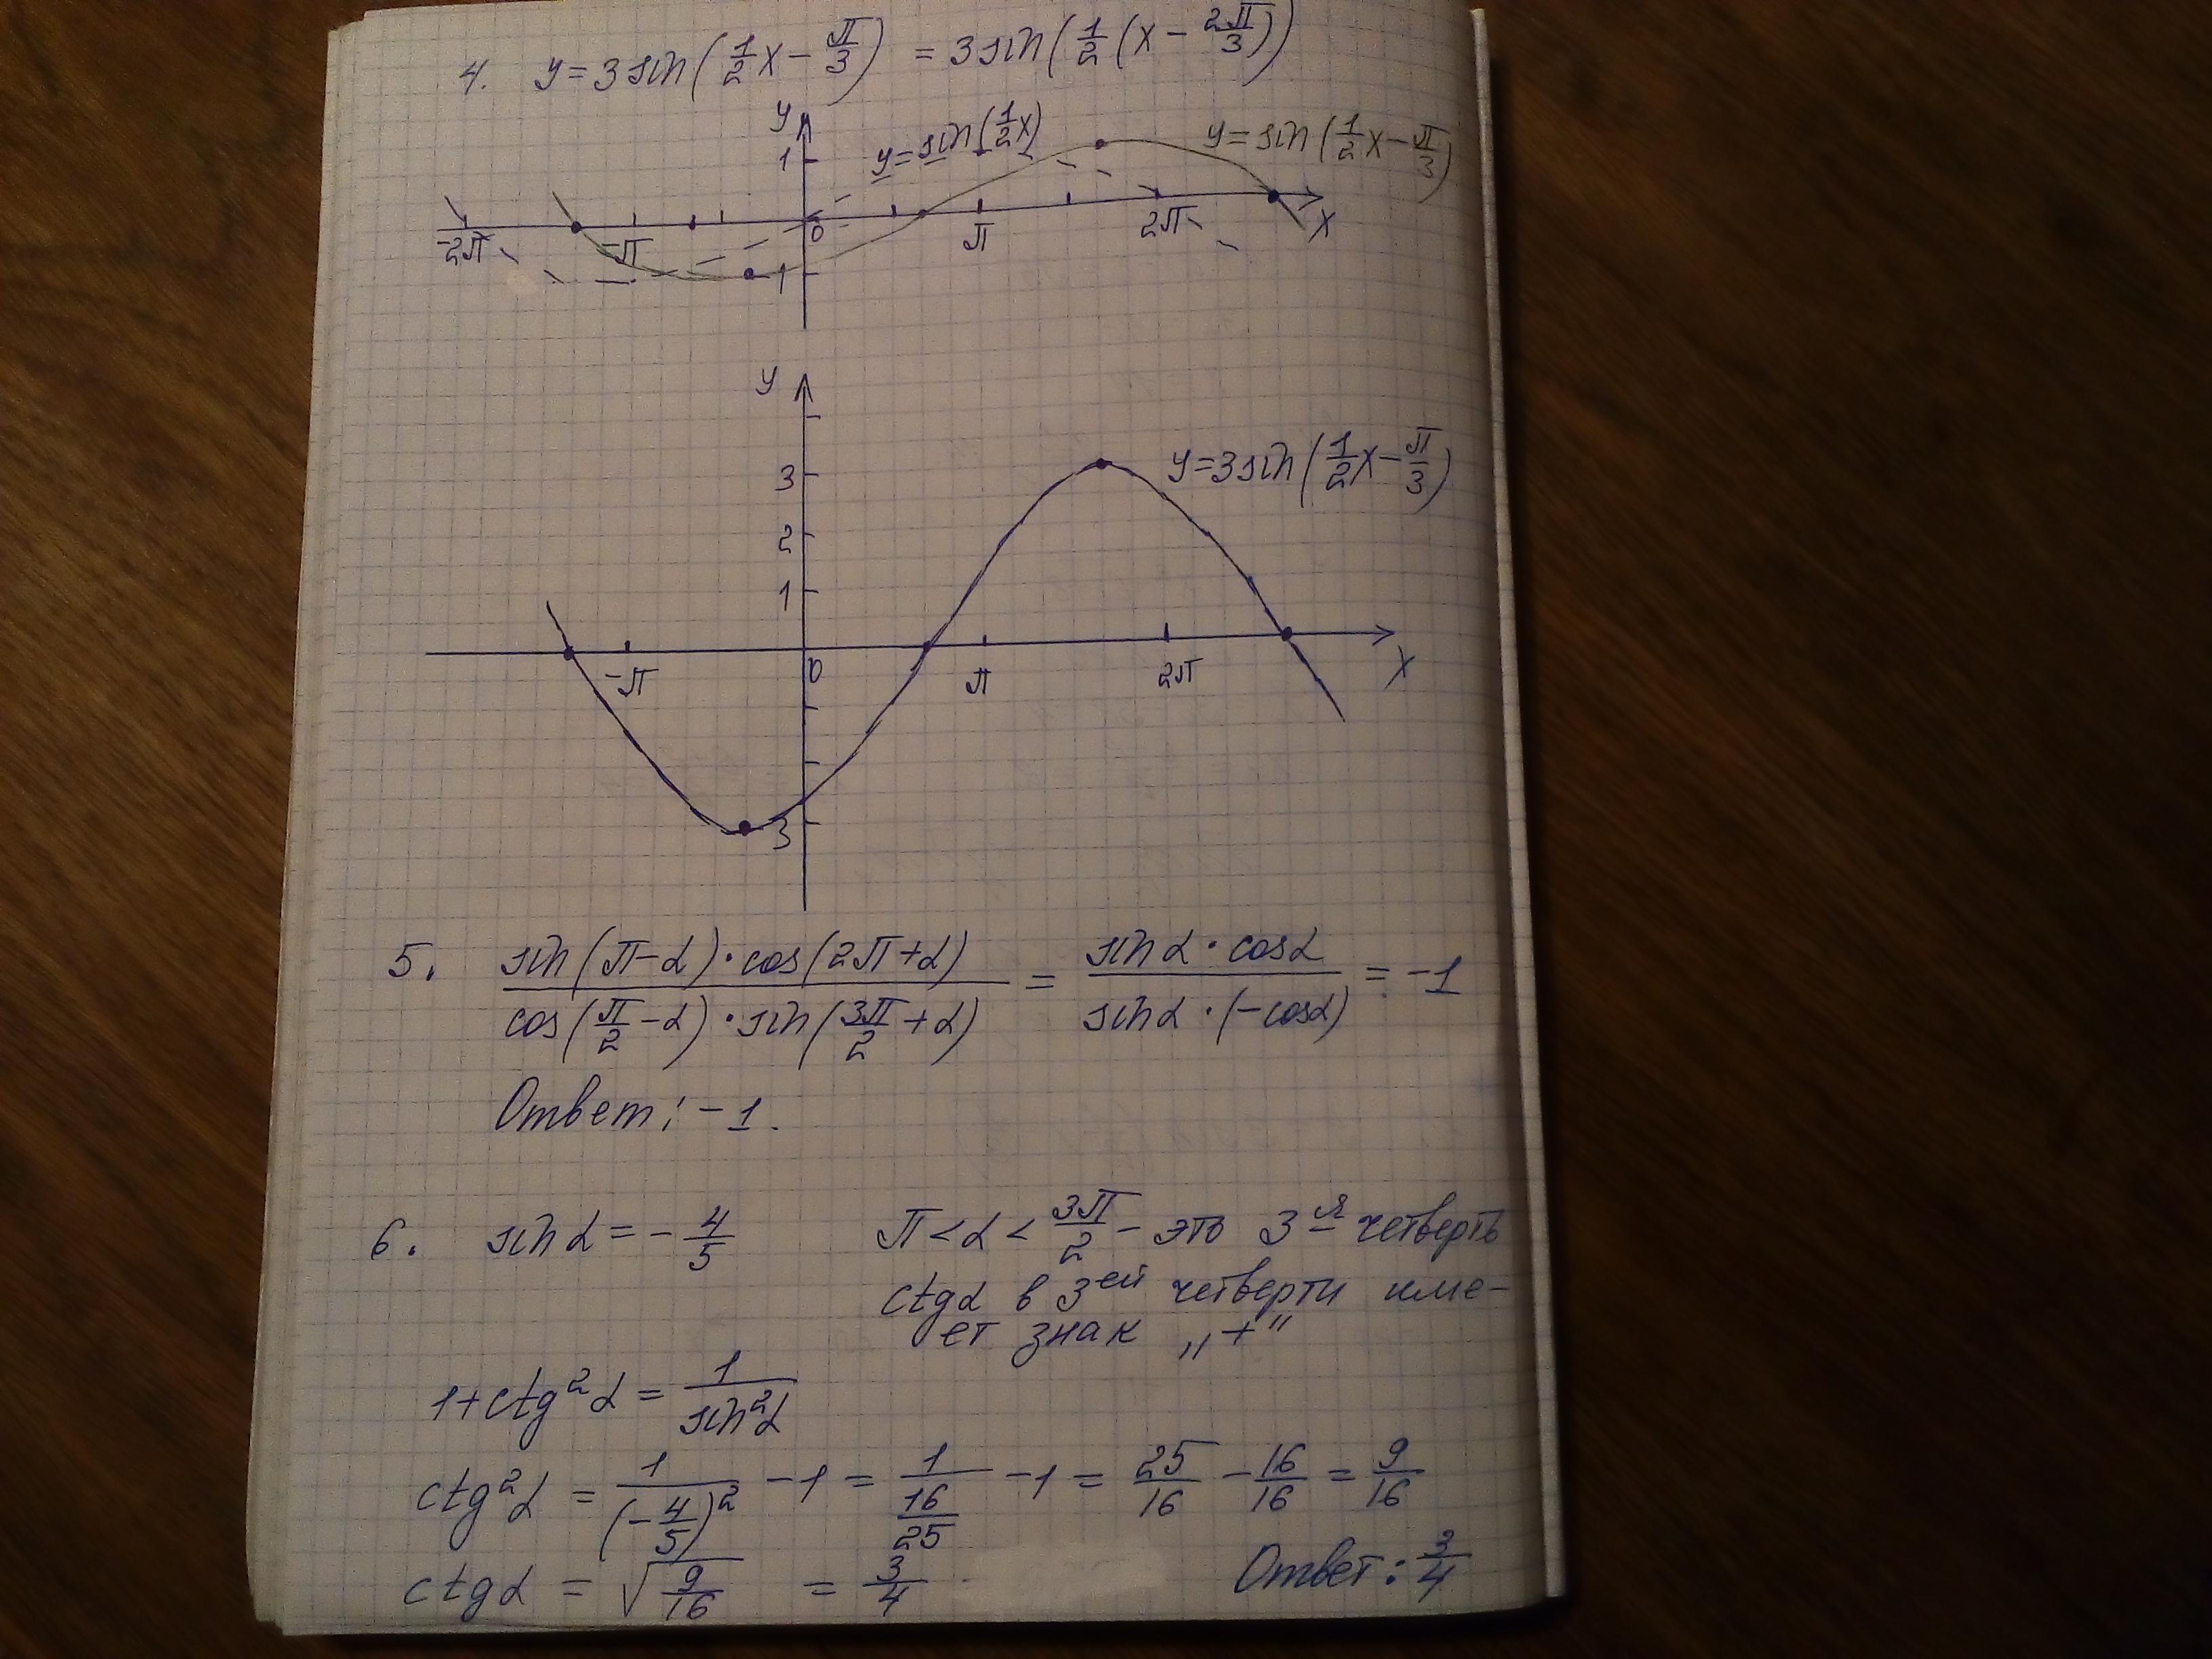 4. y=3sin(1/2x-π/3) =3sin(1/2(x-2π/3))
y
1
y=sin(1/2x)
y=sin(1/2x-π/3)
-2π -π 0 π 2π x
-1
y
y=3sin(1/2x-π/3)
3
2
1
-π 0 π 2π x
-3
5. sin(π-α)·cos(2π+α)/cos(π/2-α)·sin(3π/2+α) = sinα·cosα/sinα·(-cosα) = -1
Ответ: -1.
6. sinα=-4/5 π<α<3π/2- это 3я четверть
ctgα в 3ей четверти име-
ет знак „+“
1+ctg²α=1/sin²α
ctg²α = 1/(-4/5)² -1 = 1/(16/25) -1 = 25/16 - 16/16 = 9/16
ctgα = √9/16 = 3/4 Ответ: 3/4